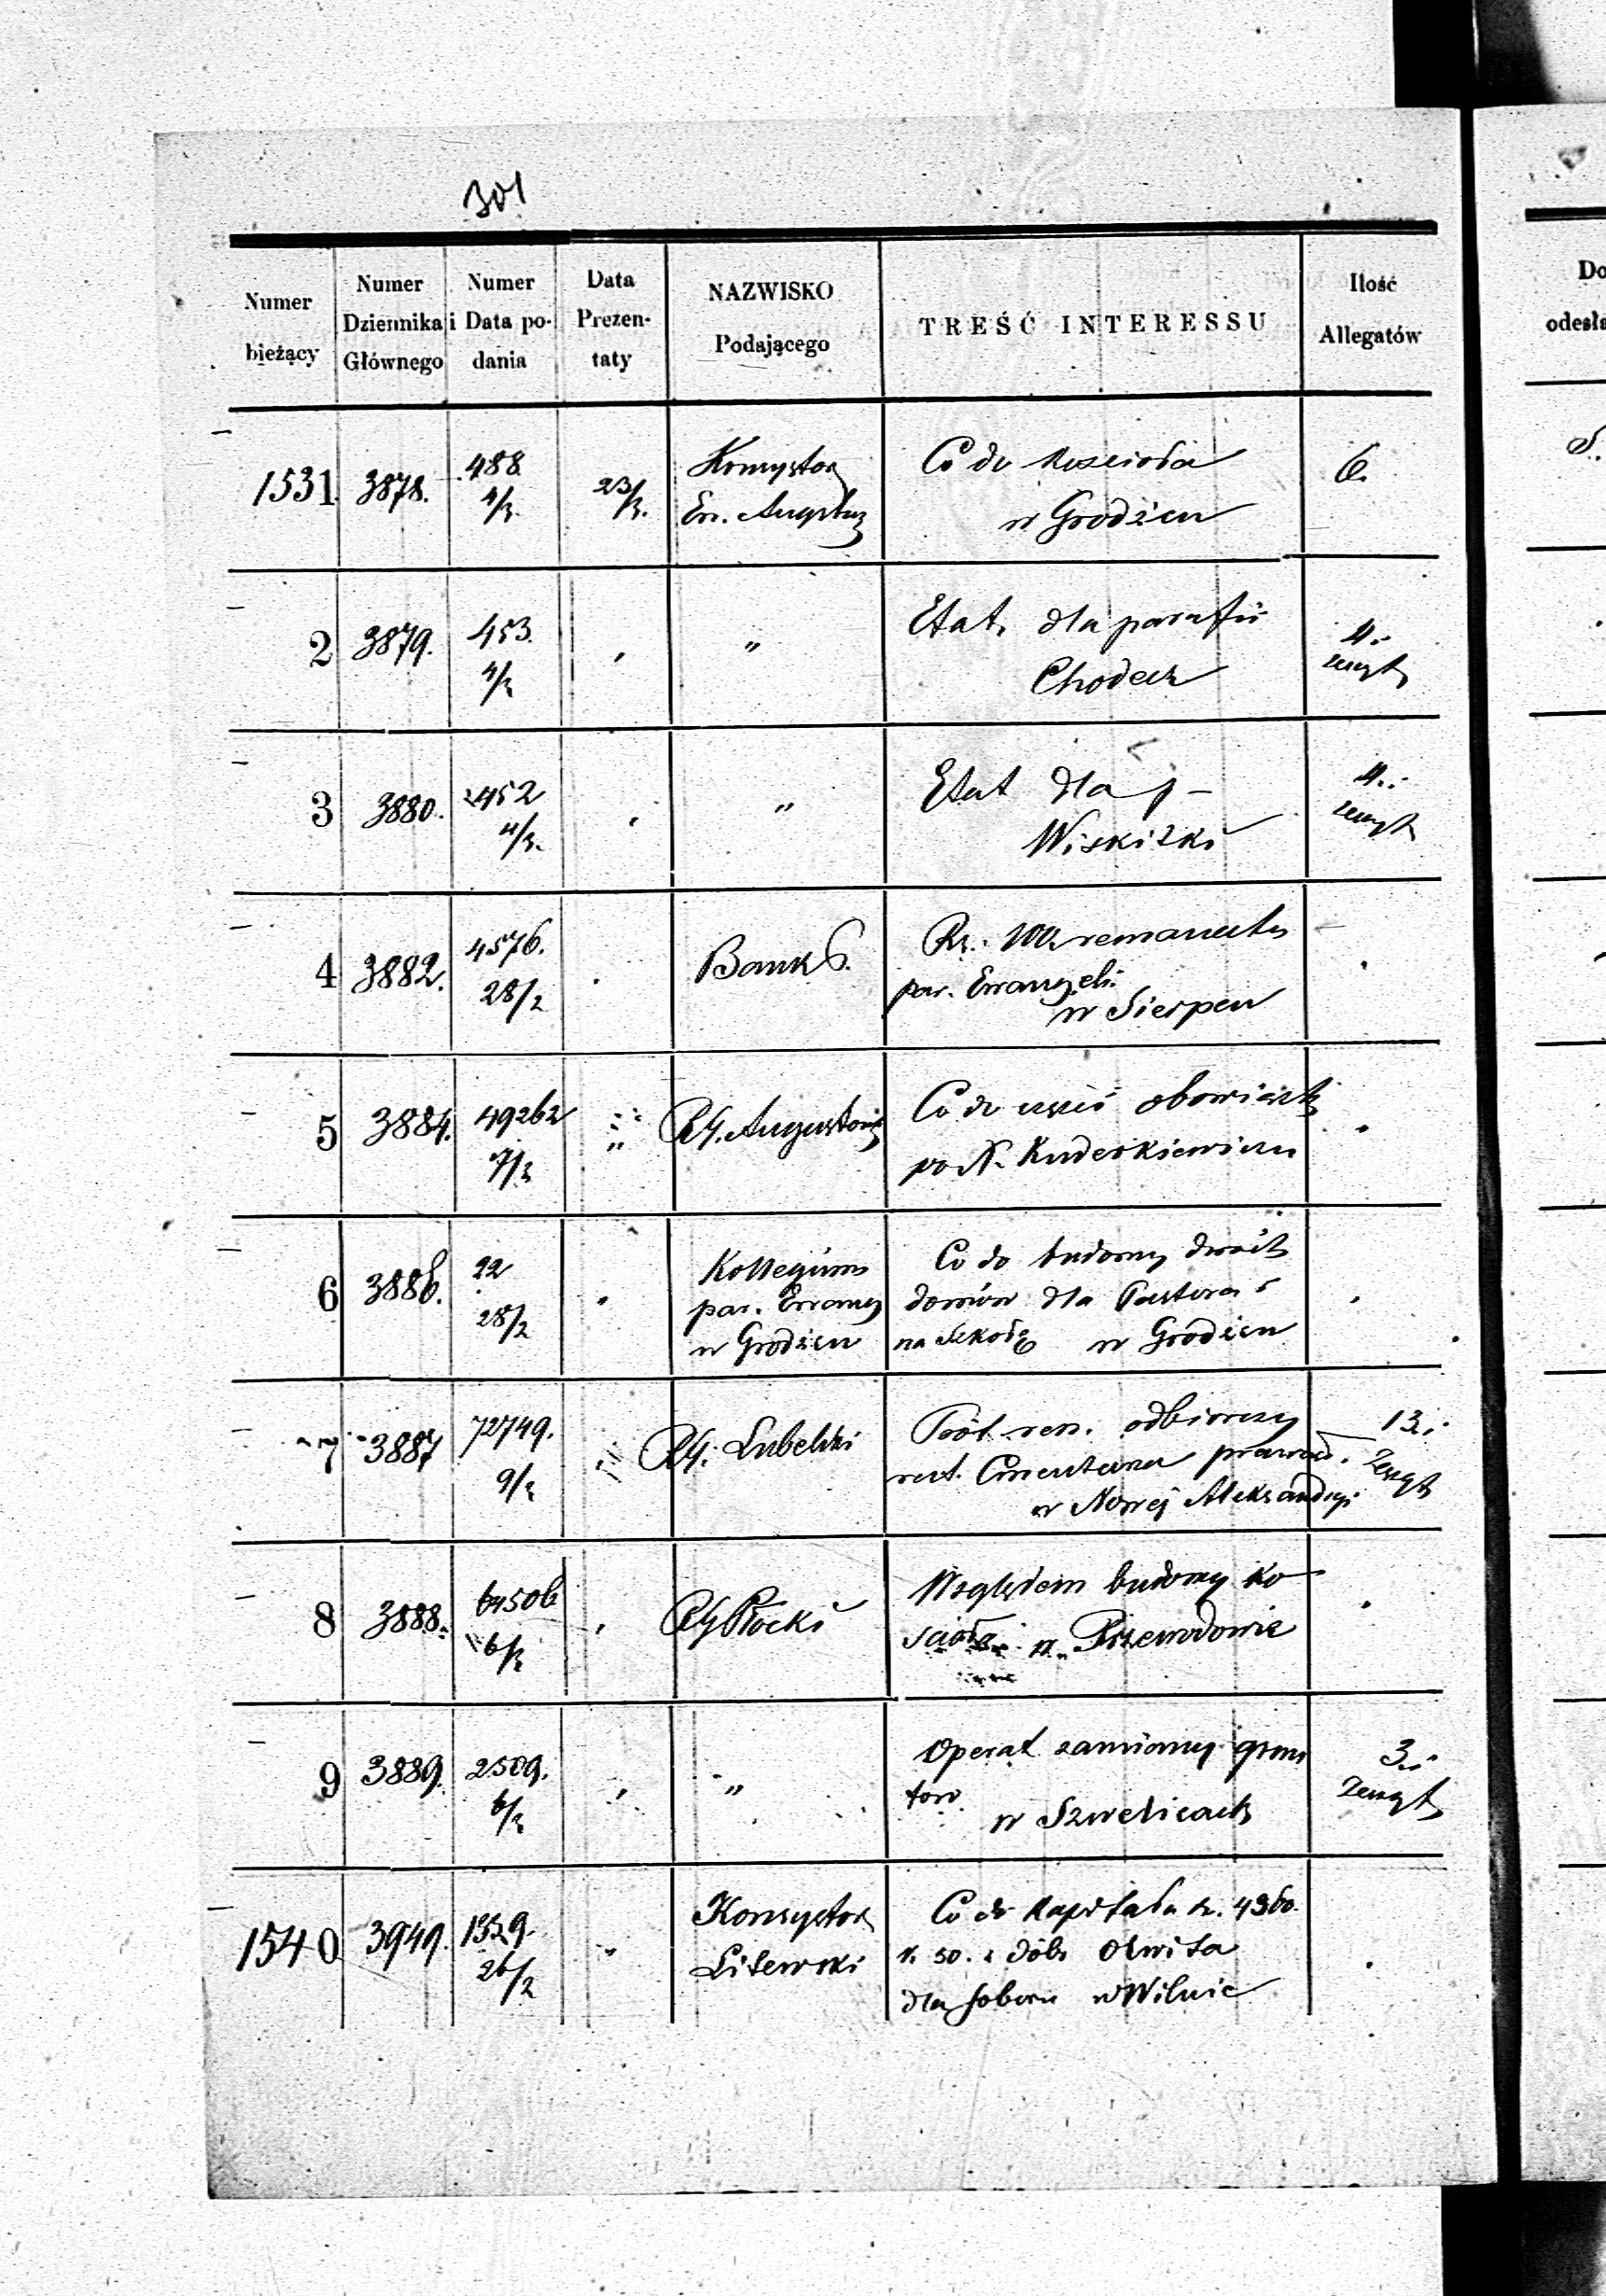 301
Numer bieżący
Numer Dziennika Głównego
Numer i Data podania
Data Prezentaty
NAZWISKO Podającego
TREŚĆ INTERESSU
Ilość Allegatów
Do
odesła
1531 3878. 488 4/3. 23/3. Konsystorz Ew. Augsbur Co do kościoła w Grodźcu 6.
2 3879. 453. 4/3 " Etat dla parafii Chodecz 4. zeszyt
3 3880. 452 4/3. " Etat dla p – Wiskitki 4. zeszyt
4 3882. 4576. 28/2 Bank P. Rs. remanentu
par. Ewangeli.
w Sierpcu
5 3884. 49262 7/3 " RG. Augustows Co do obowiązk
po N. Kuderkiewiczu
6 3886. 22 28/2 Kollegium Co do budowy dwóch
par. Ewang domów dla Pastora i
w Grodźcu na szkołę w Grodźcu
7 3887 72749. 9/3 RG. Lubelski odbiorczy 13.
Cmentarza prawosł. zeszyt
w Nowej Aleksandryi
8 3888. 6/3 RG Płocki Względem budowy ko
ścioła w Przewodowie
9 3889. 2509. 6/3 " Operat zamiany grun 3.
tów zeszyt
w Szwelicach
1540 3949. 1529. 26/2 Konsystorz Co do kapitału r. 4360.
Litewski k. 50. z dóbr Olwita
dla soboru w Wilnie